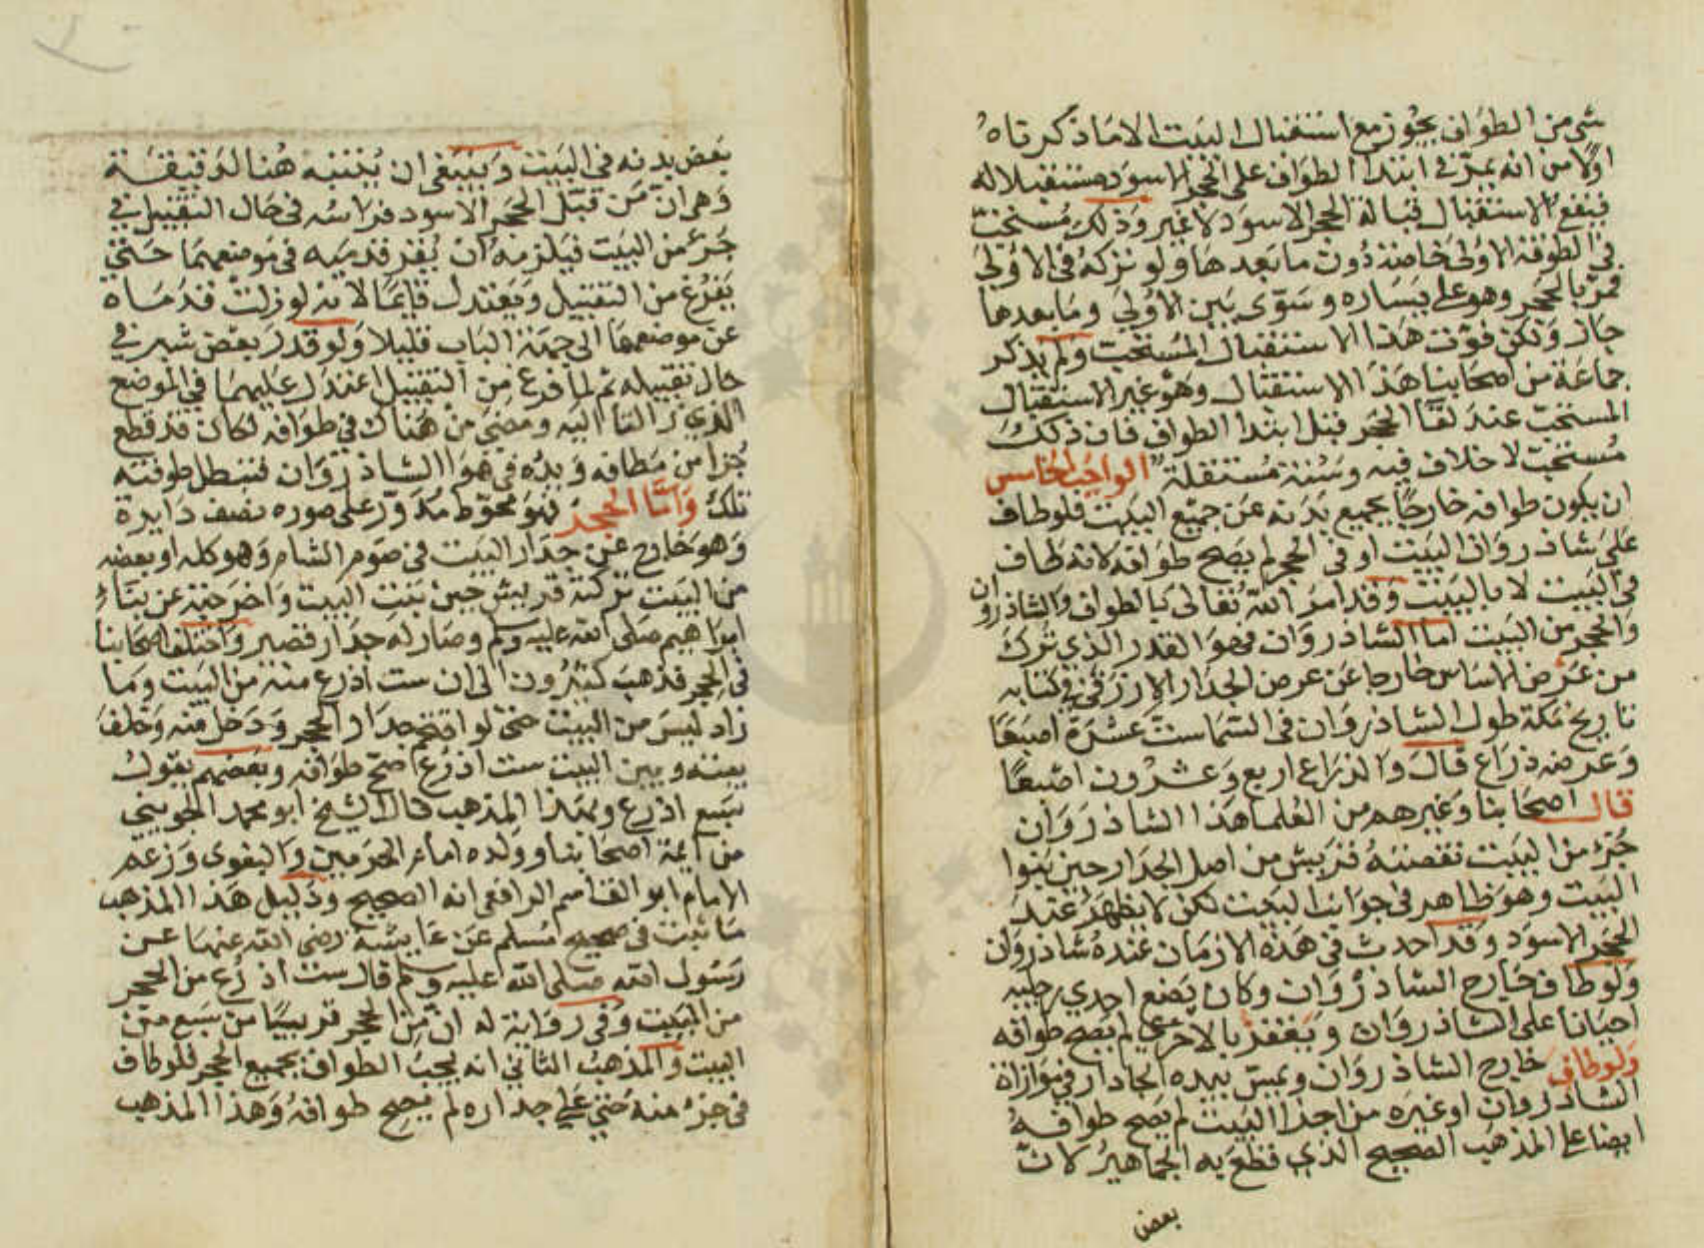 شي من الطواف يجوز مع استقبال البيت الا ما ذكرناه
اولا من انه يمر في ابتدا الطواف على الحجر الاسود مستقبلا له
فيقع الاستقبال قبالة الحجر الاسود لا غير وذلك مستحب
في الطوفة الاولى خاصة دون ما بعدها ولو تركه في الاولى
فمر بالحجر وهو على يساره وسوى بين الاولى وما بعدها
جاز ولكن فوت هذا الاستقبال المستحب ولم يذكر
جماعة من اصحابنا هذا الاستقبال وهو غير الاستقبال
المستحب عند لقا الحجر قبل ابتدا الطواف فان ذلك
مستحب لا خلاف فيه وسنة مستقلة الواجب الخامس
ان يكون طوافه خارجا بجميع بدنه عن جميع البيت فلو طاف
على شاذروان البيت او في الحجر لم يصح طوافه لانه طاف
في البيت لا بالبيت وقد امر الله تعالى بالطواف والشاذروان
والحجر من البيت اما الشاذروان فهو القدر الذي ترك
من عرض الاساس خارجا عن عرض الجدار الازرقي في كتابه
تاريخ مكة طول الشاذروان في السما ست عشرة اصبعا
وعرضه ذراع قال والذراع اربع وعشرون اصبعا
قال اصحابنا وغيرهم من العلما هذا الشاذروان
جزء من البيت نقصته قريش من اصل الجدار حين بنوا
البيت وهو ظاهر في جوانب البيت لكن لا يظهر عند
الحجر الاسود وقد احدث في هذه الازمان عنده شاذروان
ولو طاف خارج الشاذروان وكان يضع احدي رجليه
احيانا على الشاذروان ويقفز بالاخرى لم يصح طوافه
ولو طاف خارج الشاذروان ويمس بيده الجدار في موازاة
الشاذروان او غيره من اجزا البيت لم يصح طوافه
ايضا على المذهب الصحيح الذي قطع به الجماهير لان
بعض
بعض بدنه في البيت وينبغي ان يتنبه هنا لدقيقة
وهي ان من قبل الحجر الاسود فراسه في حال التقبيل في
جزء من البيت فيلزمه ان يقر قدميه في موضعهما حتى
يفرغ من التقبيل ويعتدل قايما لانه لو زلت قدماه
عن موضعهما الى جهة الباب قليلا ولو قدر بعض شبر في
حال تقبيله ثم لما فرغ من التقبيل اعتدل عليهما في الموضع
الذي زالتا اليه ومضى من هناك في طوافه لكان قد قطع
جزا من مطافه ويده في هوا الشاذروان فتبطل طوفته
تلك واما الحجر فهو محوط مدور على صورة نصف دايرة
وهو خارج عن جدار البيت في صوم الشام وهو كله او بعضه
من البيت تركته قريش حين بنت البيت واخرجته عن بناء
ابراهيم صلى الله عليه وسلم وصار له جدار قصير واختلف اصحابنا
في الحجر فذهب كثيرون الى ان ست اذرع منه من البيت وما
زاد ليس من البيت حتى لو اقتحم جدار الحجر ودخل منه وخلف
بينه وبين البيت ست اذرع صح طوافه وبعضهم يقول
سبع اذرع وبهذا المذهب قال الشيخ ابو محمد الجويني
من ايمة اصحابنا وولده امام الحرمين والبغوى وزعم
الامام ابو القاسم الرافعي انه الصحيح ودليل هذا المذهب
ما ثبت في صحيح مسلم عن عايشة رضي الله عنها عن
رسول الله صلى الله عليه وسلم قال ست اذرع من الحجر
من البيت وفي رواية له ان من الحجر قريبا من سبع من
البيت والمذهب الثاني انه يجب الطواف بجميع الحجر فلو طاف
في جزء منه حتى على جداره لم يصح طوافه وهذا المذهب